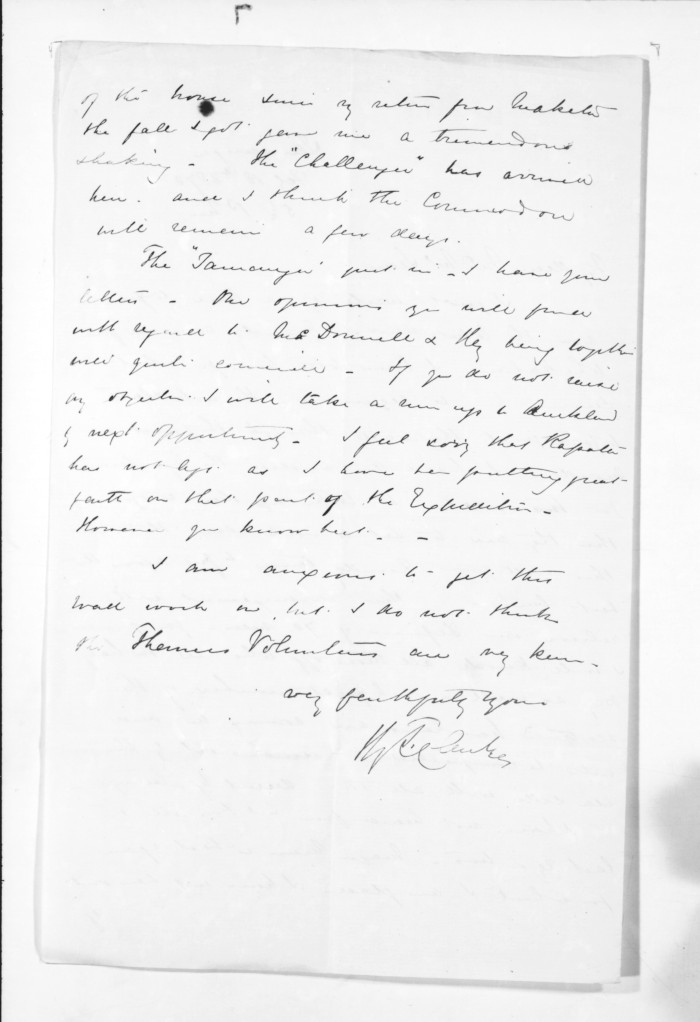 of the house since my return from Maketu
the fall I got gave me a tremendous
shaking - The "Challenger" has arrived
here. and I think the Commodore
will remain a few days.
The "Tauranga" just in - I have your
letters - The opinions you will find
with regard to McDonnell & Hy being together
will quite coincide - If you do not raise
any objection I will take a run up to Auckland
by next opportunity - I feel sorry that Ropata
has not left as I have been putting great
faith on that part of the Expedition -
However you know best. -
I am anxious to get this
road work on, but I do not think
the Thames Volunteers are very keen -
very faithfully yours
Hy T. Clarke